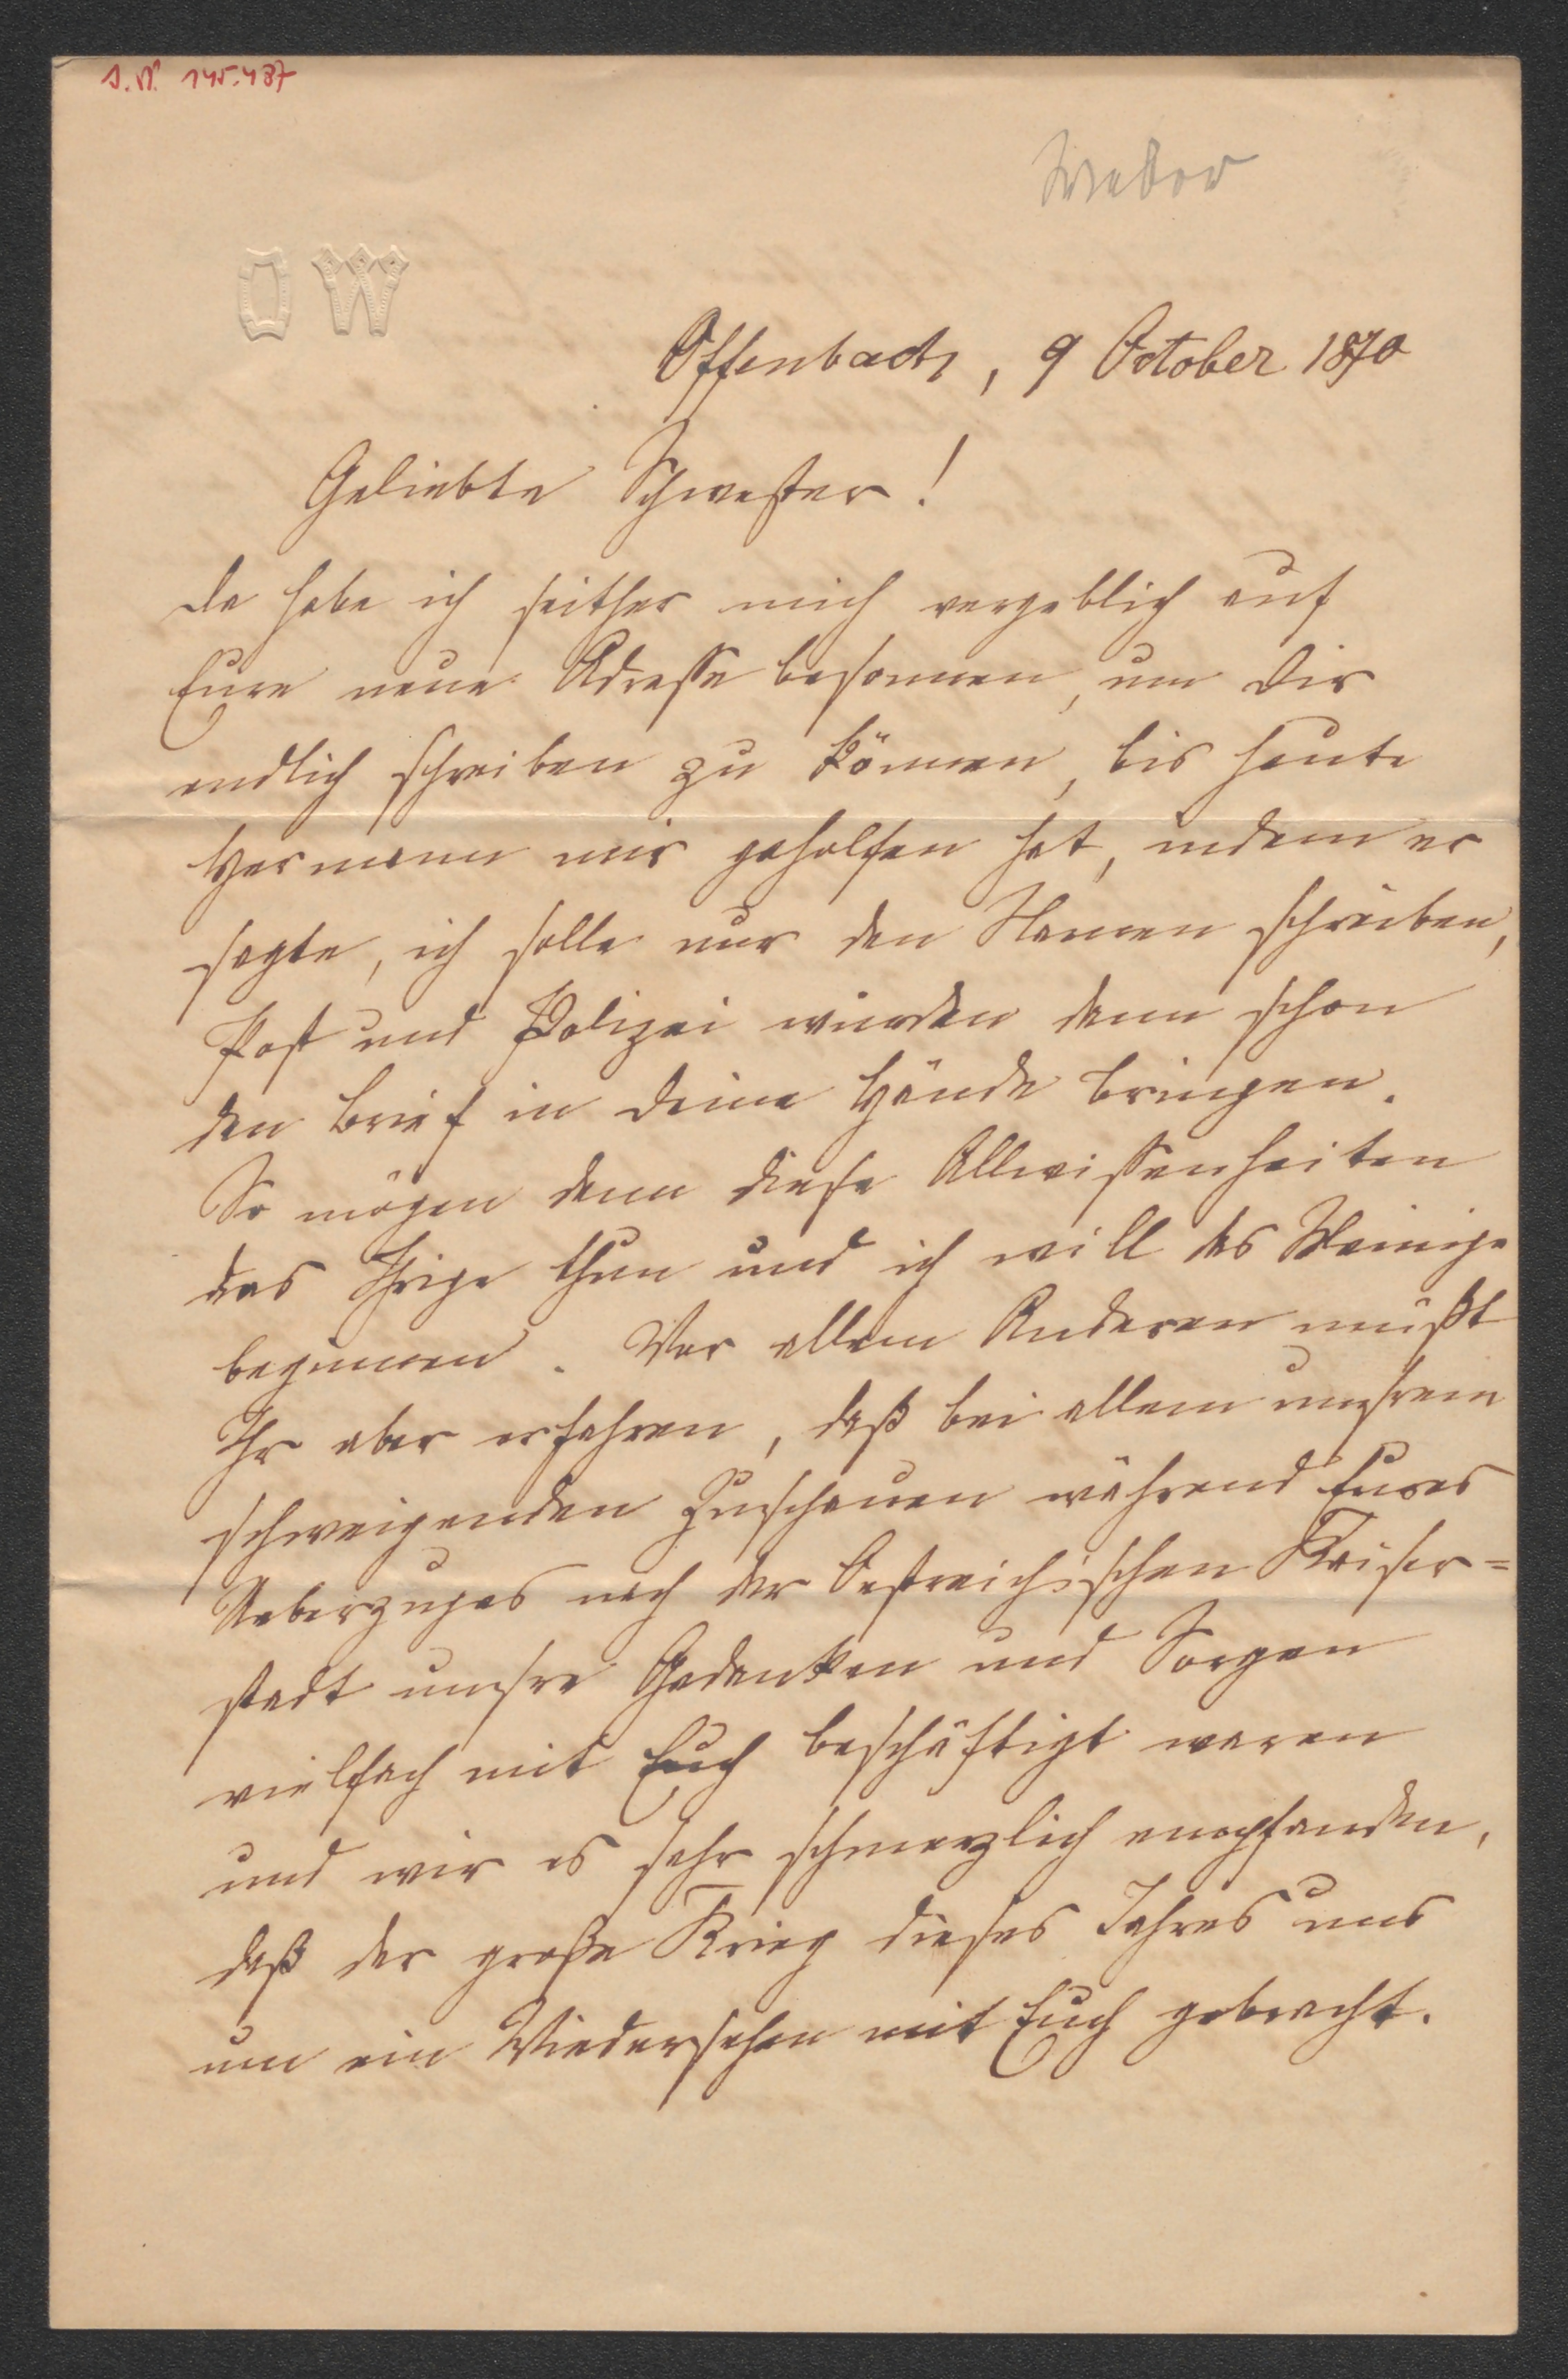 J.N. 145.487
Weber
OW
Offenbach, 9 October 1870
Geliebte Schwester!
da habe ich seither mich vergeblich auf
Eure neue Adresse besonnen, um Dir
endlich schreiben zu können, bis heute
Hermann mir geholfen hat, indem er
sagte, ich solle nur den Namen schreiben,
Post und Polizei würden denn schon
den Brief in Deine Hände bringen.
So mögen denn diese Allwissenheiten
das Ihrige thun und ich will das Meinige
beginnen. Vor allem Anderen müßt
Ihr aber erfahren, daß bei allem unsrem
schweigenden Zuschauen während Eures
Ueberzuges nach der Oestreichischen Kaiser=
stadt unsre Gedanken und Sorgen
vielfach mit Euch beschäftigt waren
und wir es sehr schmerzlich empfanden,
daß der große Krieg dieses Jahres uns
um ein Wiedersehen mit Euch gebracht.